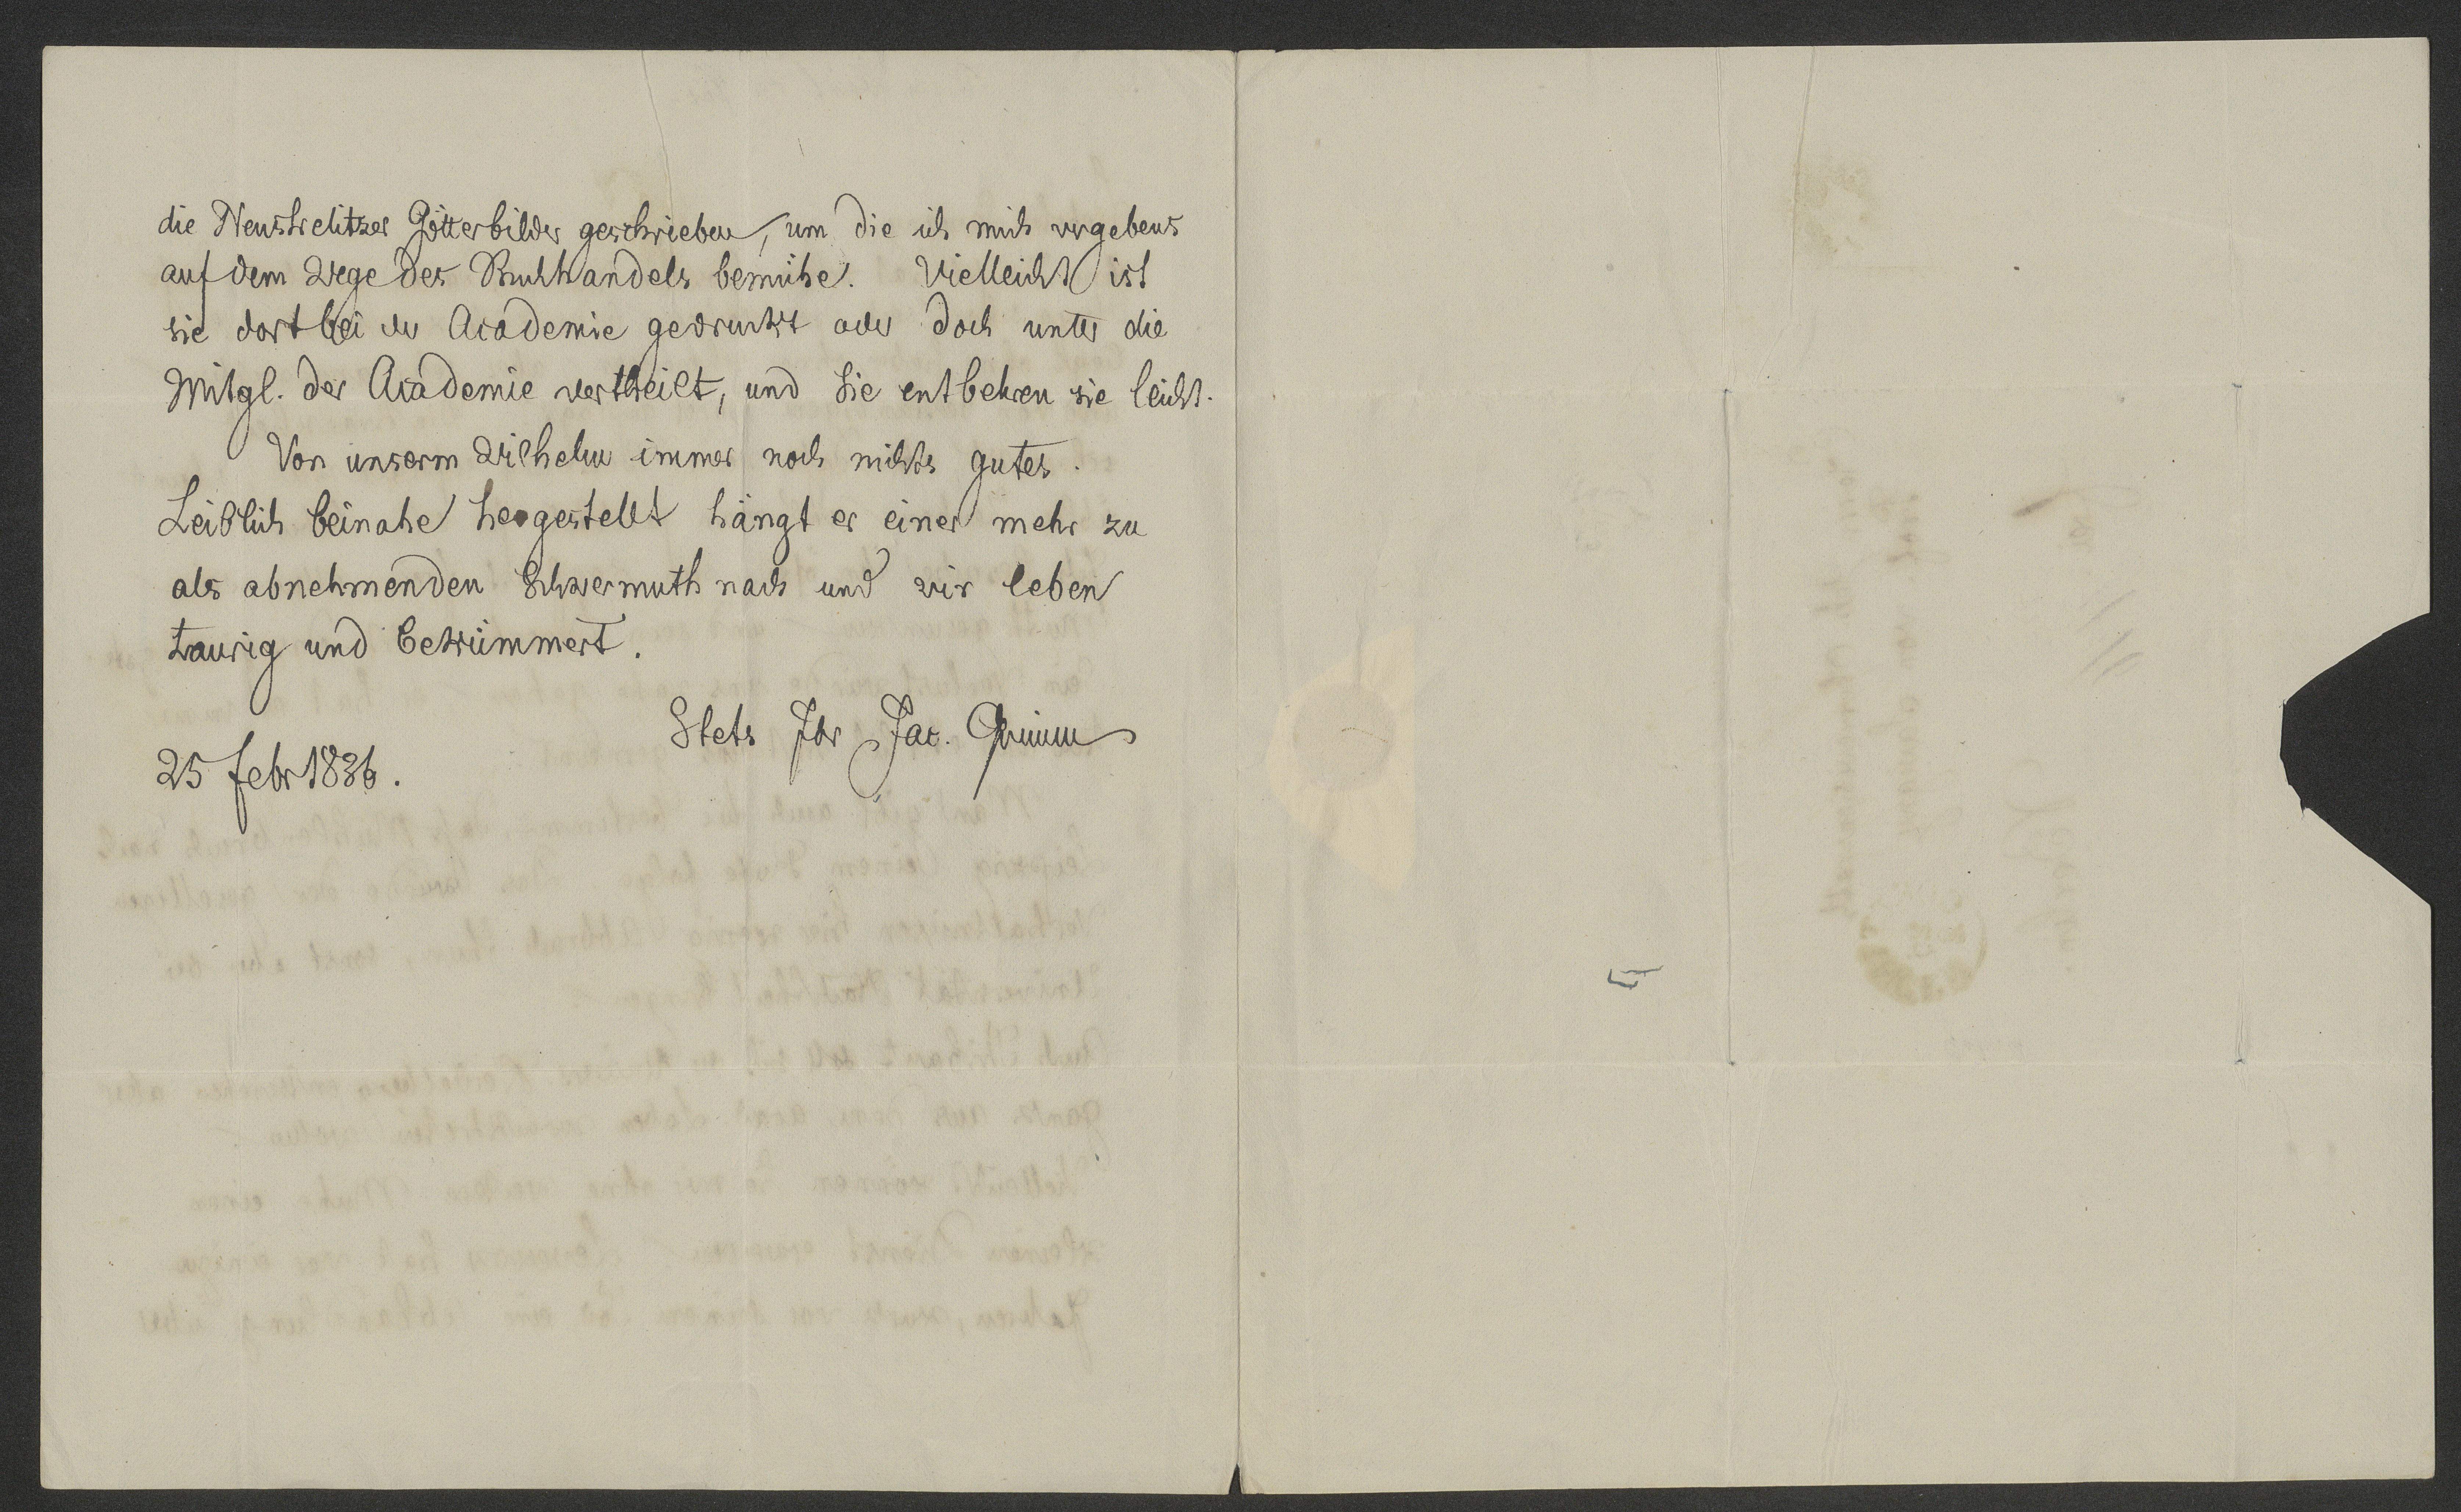 die Neustrelitzer Götterbilder geschrieben, um die ich mich vergebens
auf dem Wege des Buchhandels bemühe. Vielleicht ist
sie dort bei der Academie gedruckt oder doch unter die
Mitgl. der Academie vertheilt, und Sie entbehren sie leicht.
Von unserm Wilhelm immer noch nichts gutes.
Leiblich beinahe hergestellt hängt er einer mehr zu
als abnehmenden Schwermuth nach und wir leben
traurig und bekümmert.
Stets Ihr Jac. Grimm
25 febr 1836.